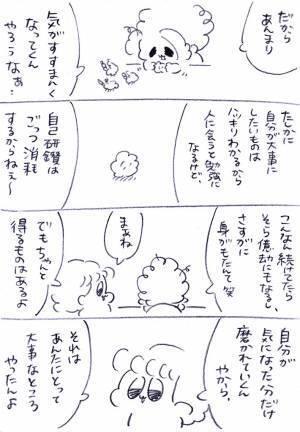 だから
あんまり
気がすすまなく
なってくん
やろうなぁ…
たしかに
自分が大事に
したいものは
ハッキリわかるから
人に会うと勉強に
なるけど、
自己研鑽は
ごっつ消耗
するからねぇ〜
こんなん続けてたら
そら億劫にもなるし、
さすがに
身がもたんて笑
まあね
でもちゃんと
得るものはあるよ
自分が
気になった分だけ
磨かれていくん
やから。
それは
あんたにとって
大事なところ
やったんよ